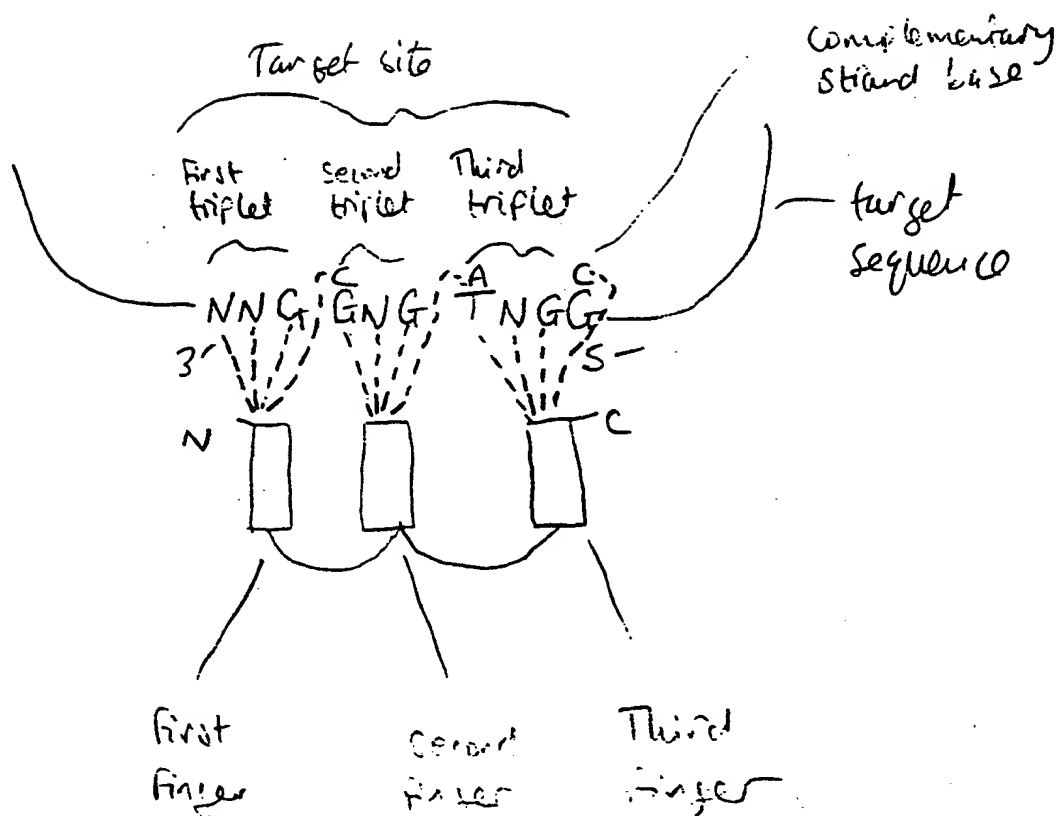 Target site
complementary
strand base
First
triplet
Second
triplet
Third
triplet
target
sequence
C A C
N N G G N G T N G G
3' 5
N C
First
finger
Second
finger
Third
finger